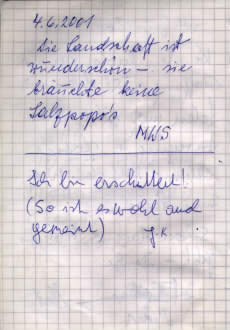 4.6.2001
Die Landschaft ist
wunderschön – sie
bräuchte keine
Salzpopo's
MWS
Ich bin erschüttert!
(So ist es wohl auch
gemeint) JK